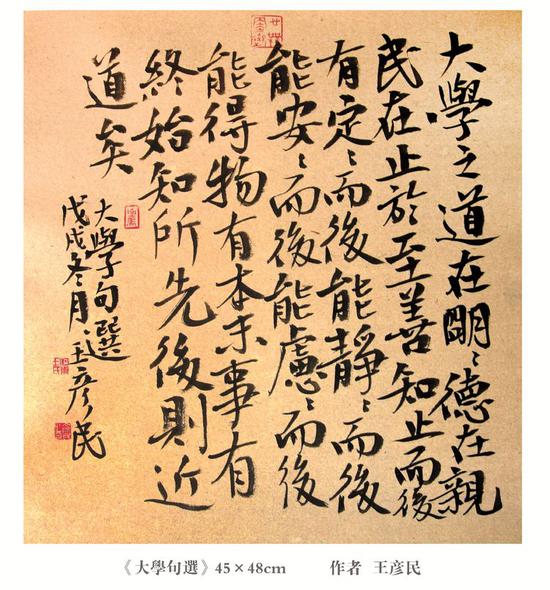 大學之道在明〻德在親
民在止於至善知止而後
有定〻而後能靜〻而後
能安〻而後能慮〻而後
能得物有本末事有
終始知所先後則近
道矣
大學句選
戊戌冬月王彥民
《大學句選》45×48cm 作者 王彦民